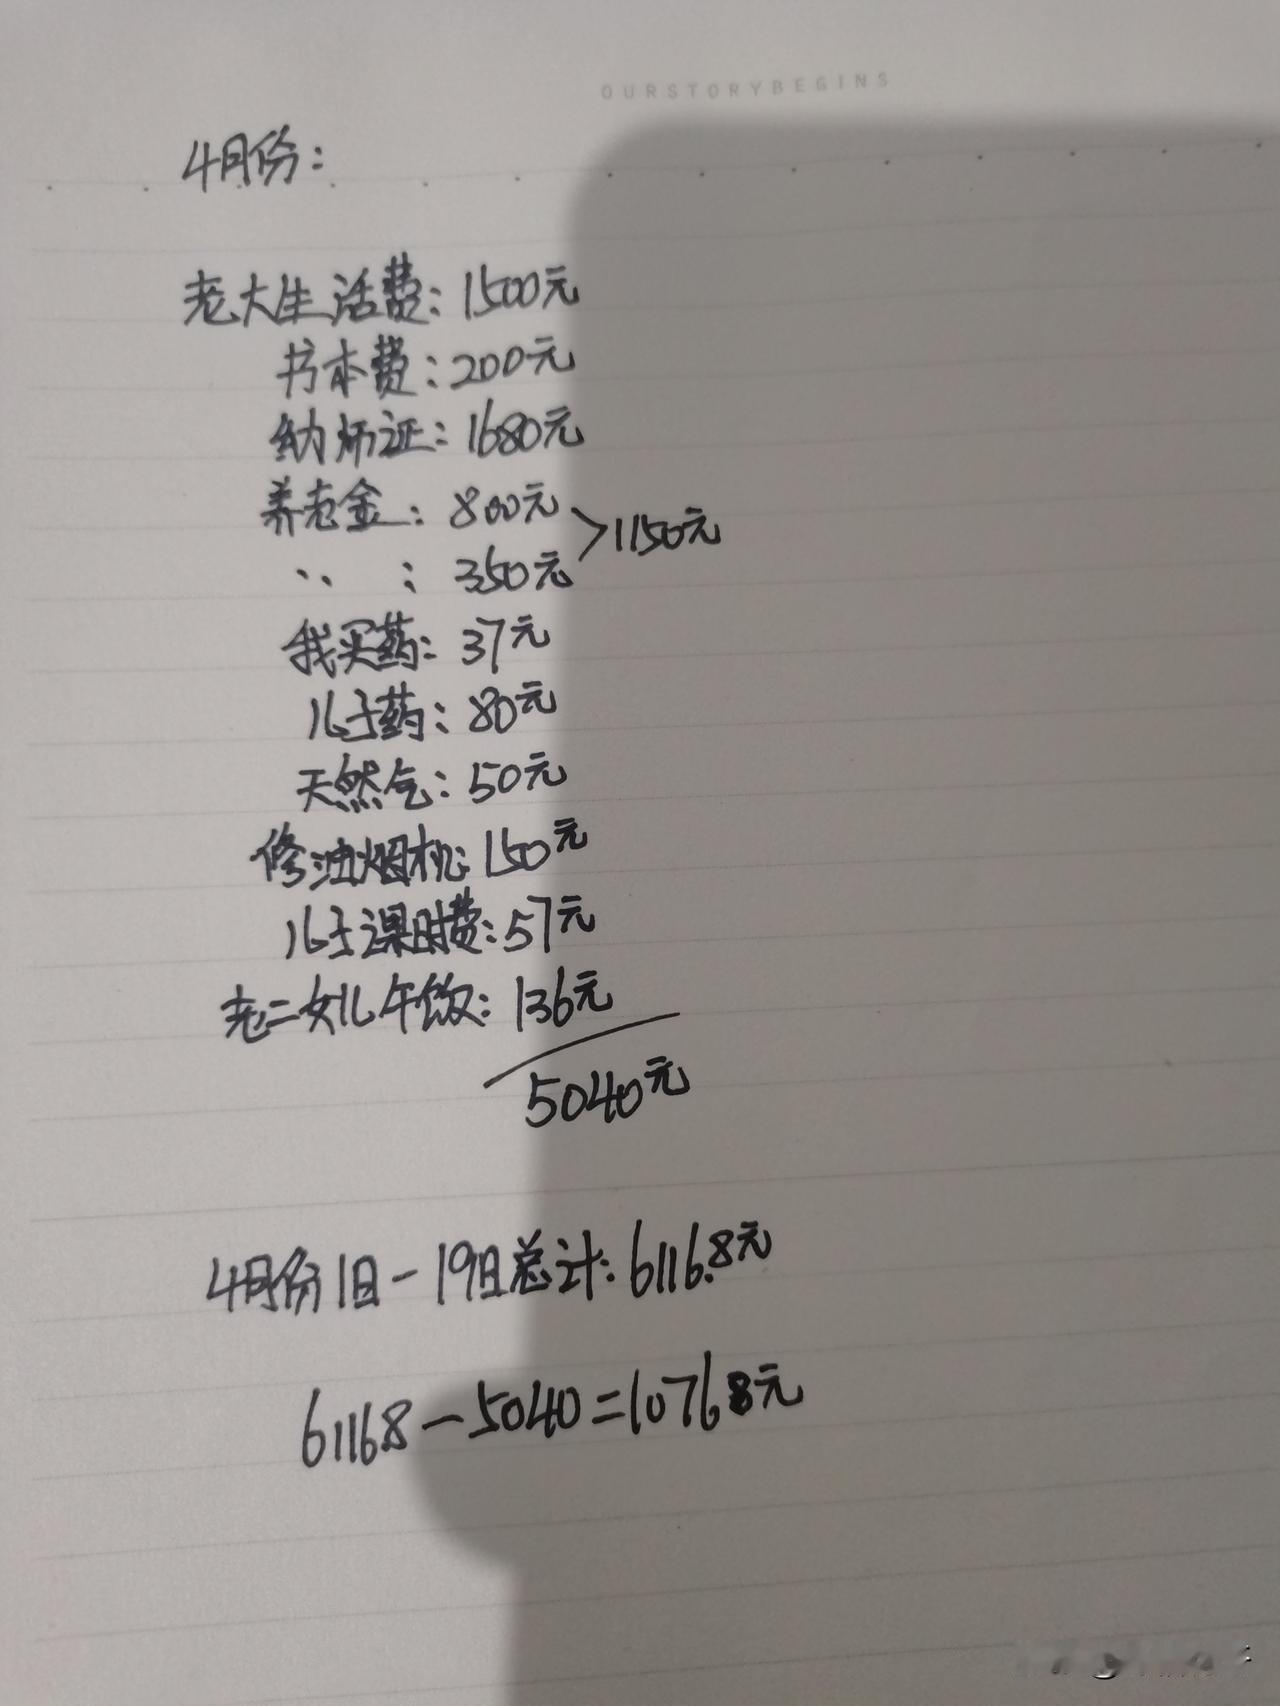 OURSTORYBEGINS
4月份:
老大生活费:1500元
书本费:200元
幼师证:1680元
养老金:800元 >1150元
〃 :350元
我买药:37元
儿子药:80元
天然气:50元
修油烟机:150元
儿子课时费:57元
老二女儿午饭:136元
5040元
4月份1日-19日总计:6116.8元
6116.8-5040=1076.8元